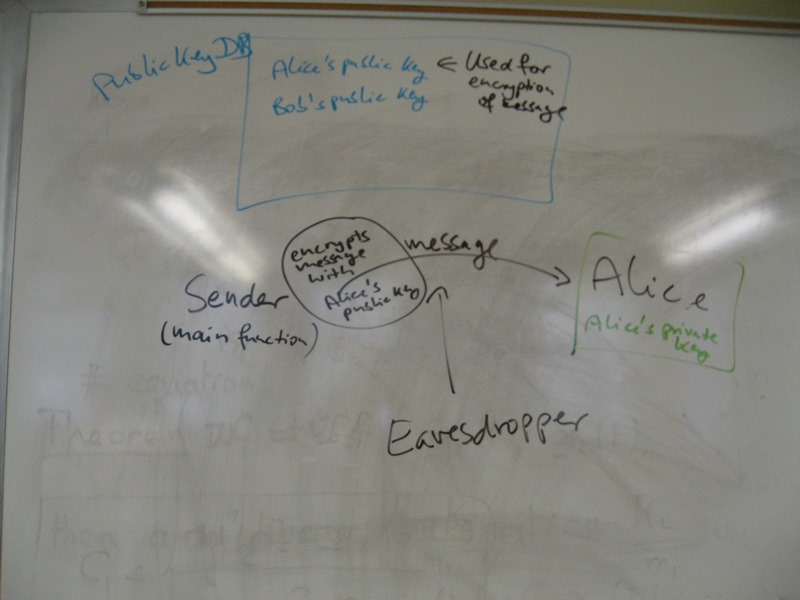 Public Key DB
Alice's public key ← Used for
encryption
of message
Bob's public key
encrypts
message
with
Alice's
public key
message
Sender
(main function)
Alice
Alice's private
key
Eavesdropper
# equation
Theorem
then a